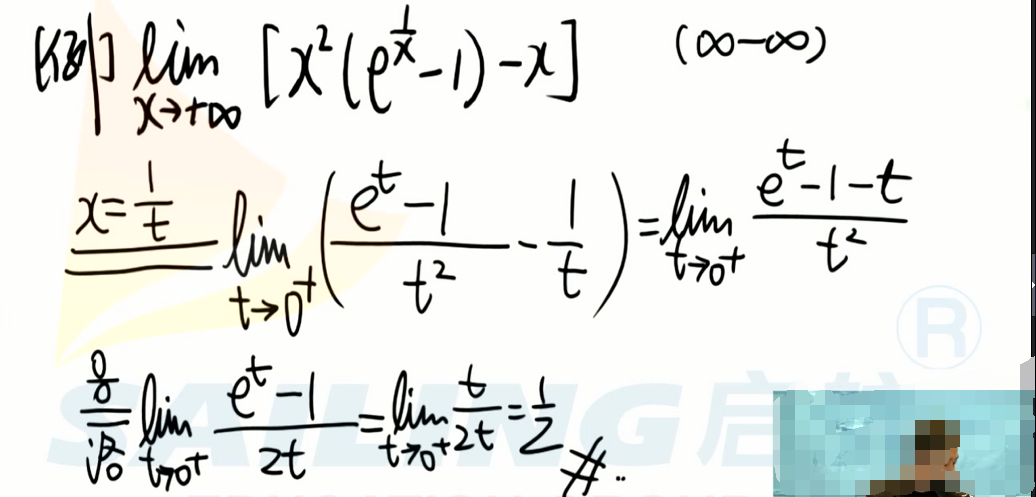 [例] lim x→+∞ [x²(e^(1/x)-1)-x] (∞-∞)
x=1/t lim t→0⁺ ((e^t-1)/t² - 1/t) = lim t→0⁺ (e^t-1-t)/t²
0/0 洛 lim t→0⁺ (e^t-1)/2t = lim t→0⁺ t/2t = 1/2 #..
SAILING 启航 ®